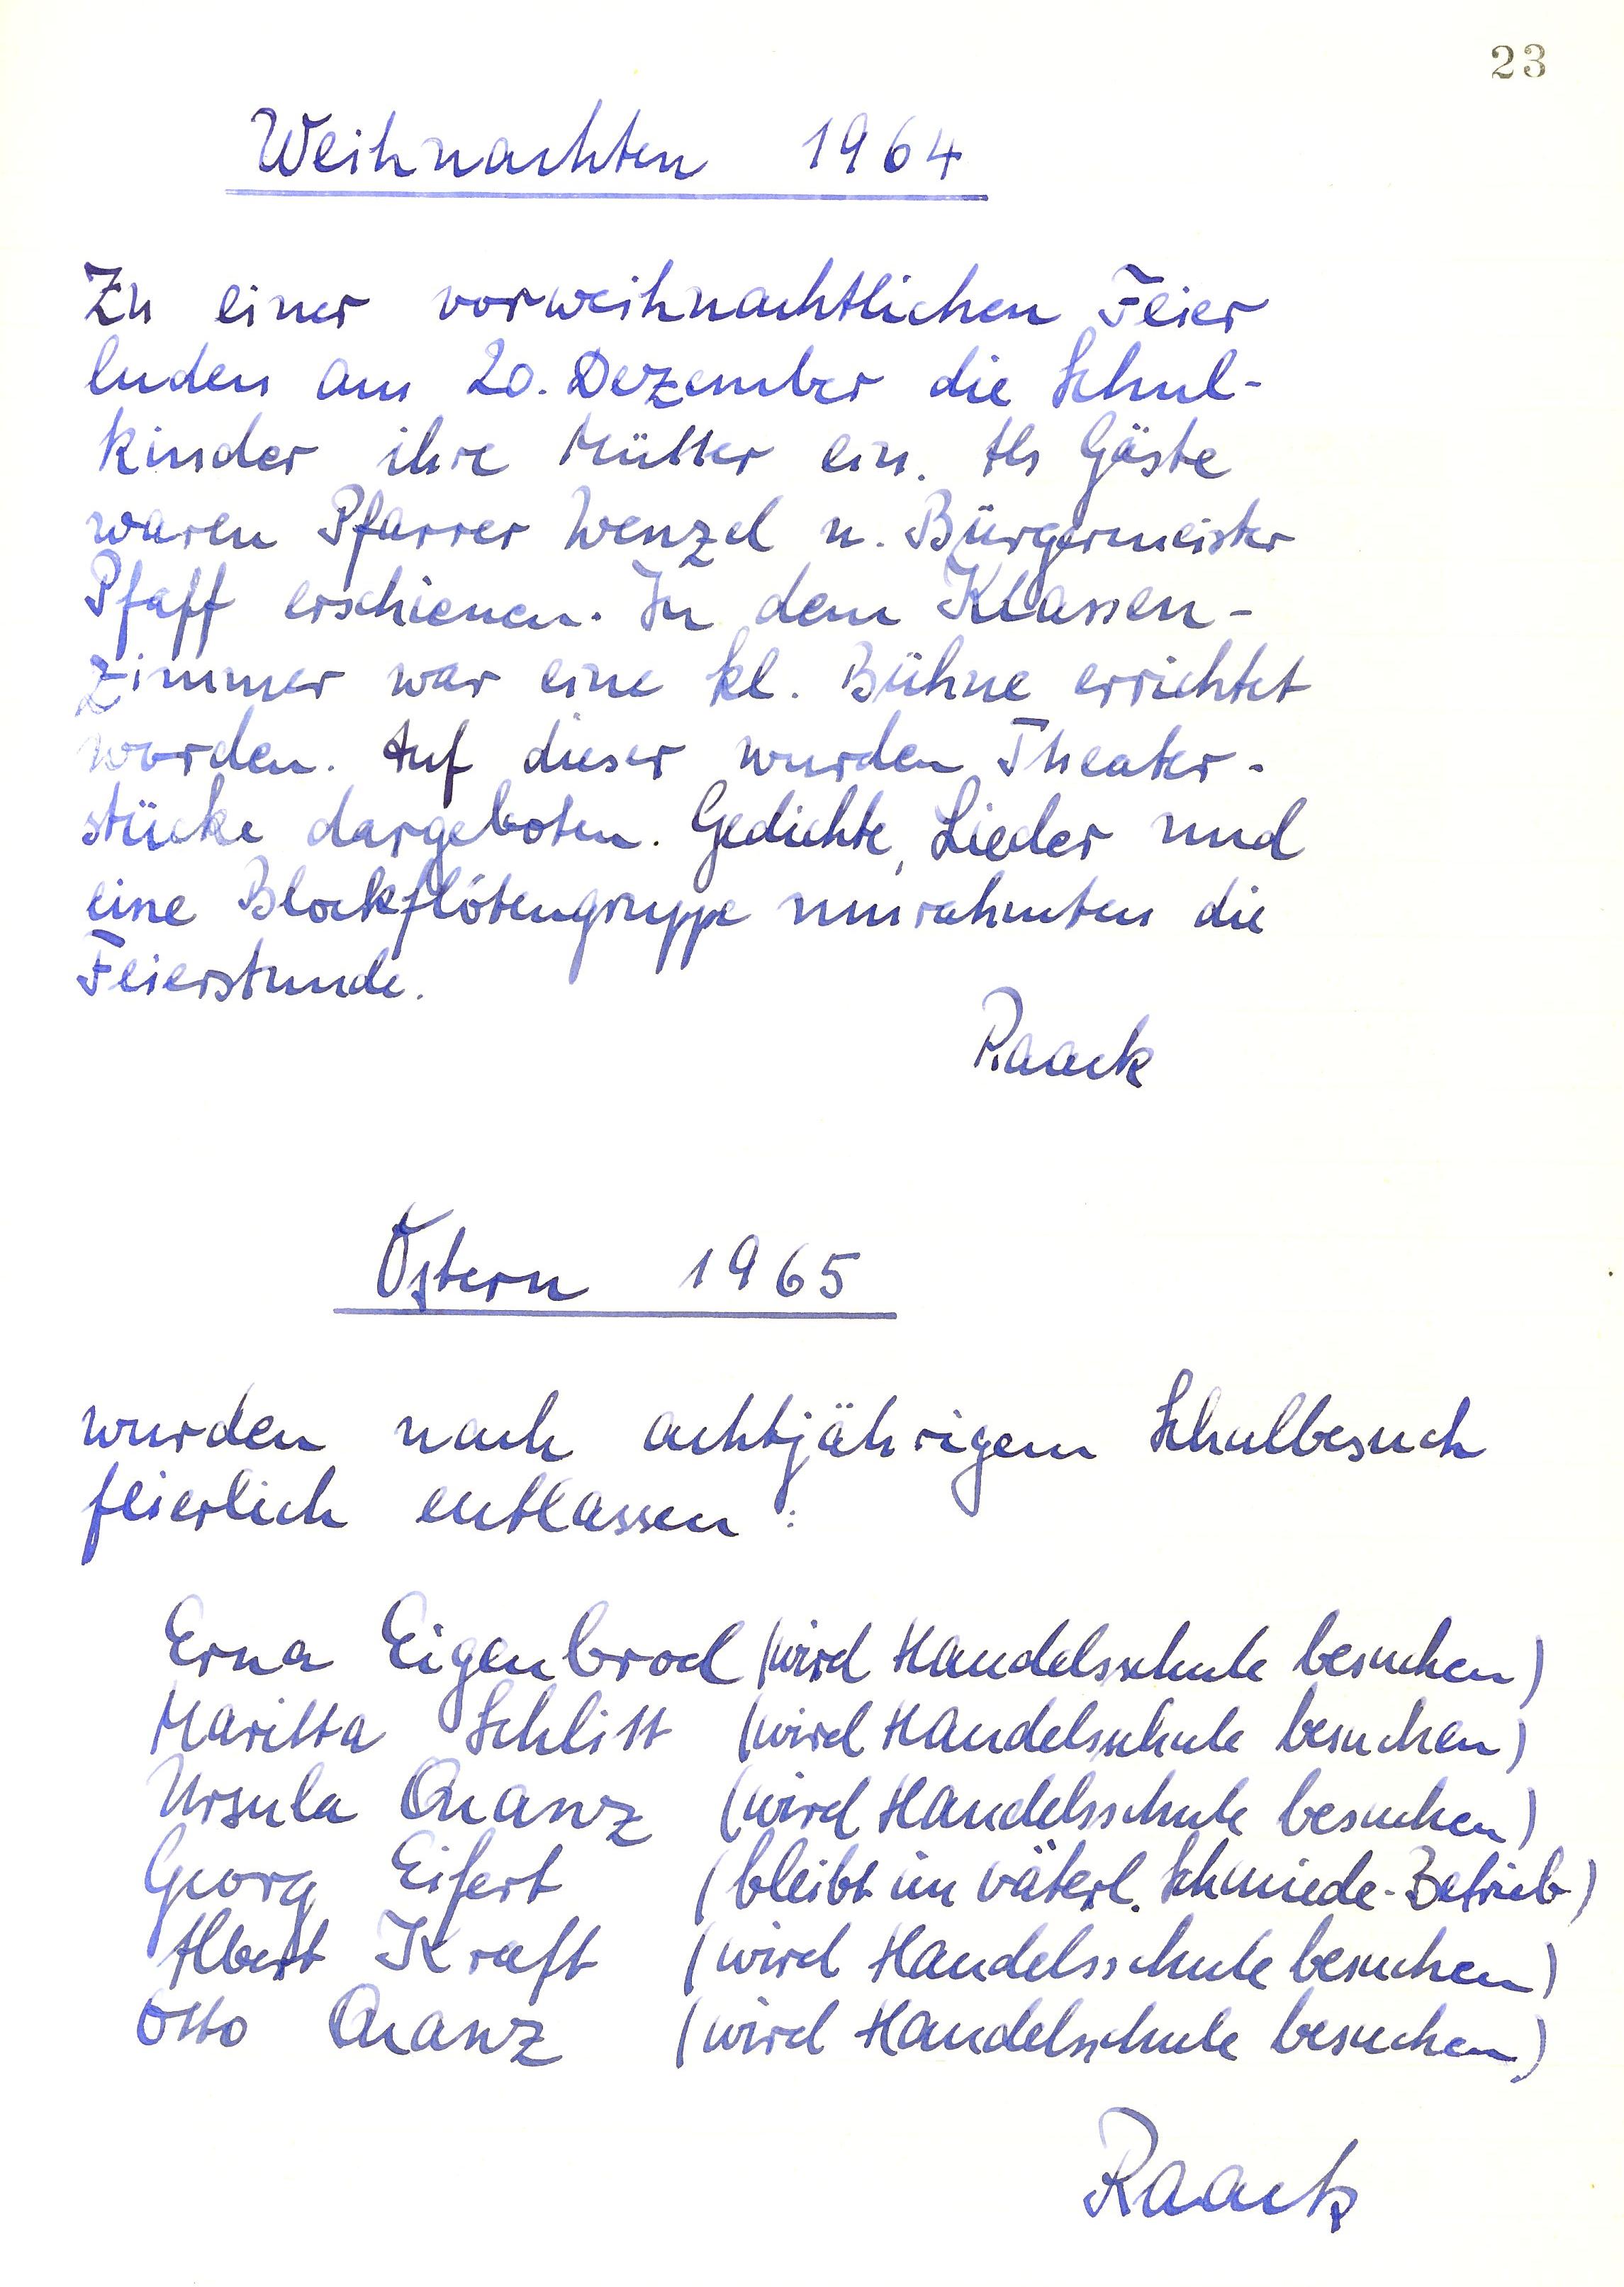 23
Weihnachten 1964
Zu einer vorweihnachtlichen Feier
luden am 20. Dezember die Schul-
kinder ihre Mütter ein. Als Gäste
waren Pfarrer Wenzel u. Bürgermeister
Pfaff erschienen. In dem Klassen-
zimmer war eine kl. Bühne errichtet
worden. Auf dieser wurden Theater-
stücke dargeboten. Gedichte, Lieder und
eine Blockflötengruppe umrahmten die
Feierstunde.
Raack
Ostern 1965
wurden nach achtjährigem Schulbesuch
feierlich entlassen:
Erna Eigenbrod (wird Handelsschule besuchen)
Maritta Schlitt (wird Handelsschule besuchen)
Ursula Quanz (wird Handelsschule besuchen)
Georg Eifert (bleibt im väterl. Schmiede-Betrieb)
Albert Kraft (wird Handelsschule besuchen)
Otto Quanz (wird Handelsschule besuchen)
Raack